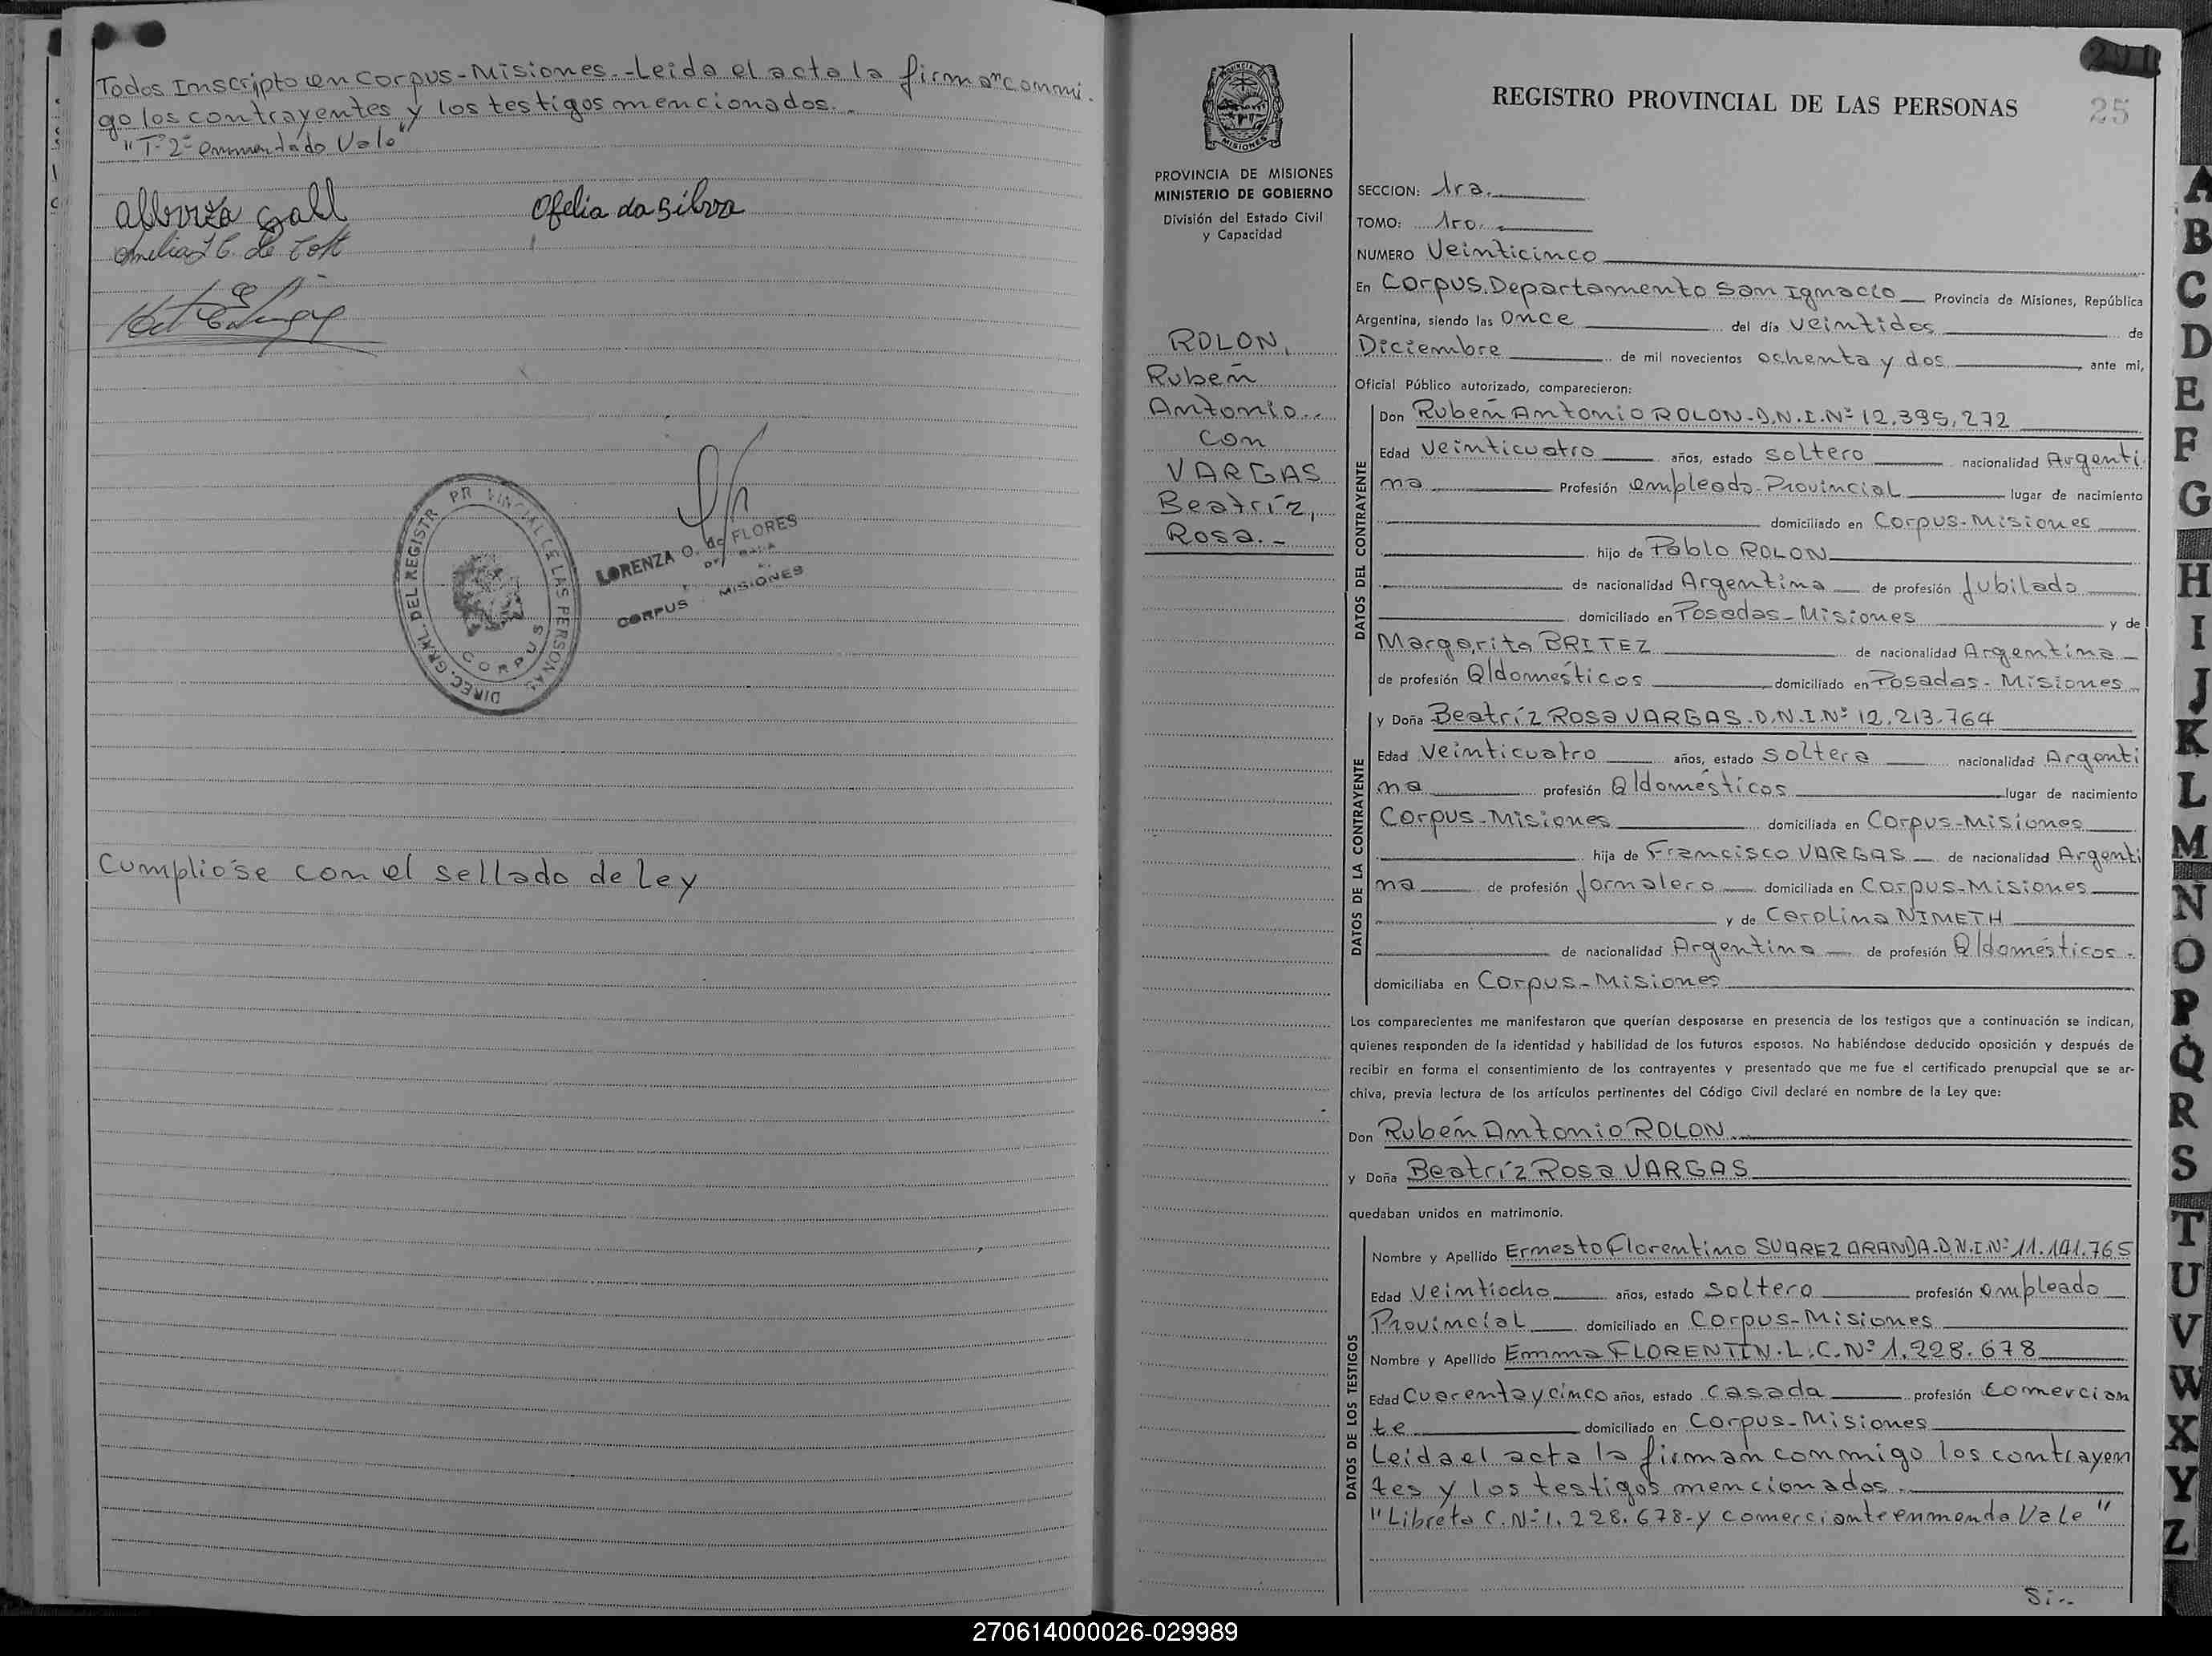 Todos Inscripto en Corpus-Misiones.-Leida el acta la firman conmi-
go los contrayentes y los testigos mencionados.-
"T-2= enmendado Vale"
Ofelia da Silva
DIREC. GRAL. DEL REGISTR PR VINCIAL DE LAS PERSONAS
CORPUS
LORENZA O. de FLORES
CORPUS MISIONES
Cumplióse con el sellado de Ley
291
REGISTRO PROVINCIAL DE LAS PERSONAS
25
MISIONES
PROVINCIA DE MISIONES
MINISTERIO DE GOBIERNO
División del Estado Civil
y Capacidad
ROLON,
Rubén
Antonio..
con
VARGAS
Beatríz,
Rosa.-
SECCION: 1ra.
TOMO: 1ro.
NUMERO Veinticinco
En Corpus.Departamento San Ignacio Provincia de Misiones, República
Argentina, siendo las Once del día veintidos de
Diciembre de mil novecientos ochenta y dos ante mí,
Oficial Público autorizado, comparecieron:
DATOS DEL CONTRAYENTE
Don Rubén Antonio ROLON-D.N.I.Nº 12.395.272
Edad Veinticuatro años, estado soltero nacionalidad Argenti
na Profesión empleado-Provincial lugar de nacimiento
domiciliado en Corpus-Misiones
hijo de Pablo ROLON
de nacionalidad Argentina de profesión Jubilado
domiciliado en Posadas-Misiones y de
Margarita BRITEZ de nacionalidad Argentina
de profesión Q/domésticos domiciliado en Posadas-Misiones
DATOS DE LA CONTRAYENTE
y Doña Beatríz Rosa VARGAS.D.N.I.Nº 12.213.764
Edad Veinticuatro años, estado soltera nacionalidad Argenti
na profesión Q/domésticos lugar de nacimiento
Corpus-Misiones domiciliada en Corpus-Misiones
hija de Francisco VARGAS de nacionalidad Argenti
na de profesión Jornalero domiciliada en Corpus-Misiones
y de Carolina NIMETH
de nacionalidad Argentina de profesión Q/domésticos.
domiciliaba en Corpus-Misiones
Los comparecientes me manifestaron que querían desposarse en presencia de los testigos que a continuación se indican,
quienes responden de la identidad y habilidad de los futuros esposos. No habiéndose deducido oposición y después de
recibir en forma el consentimiento de los contrayentes y presentado que me fue el certificado prenupcial que se ar-
chiva, previa lectura de los artículos pertinentes del Código Civil declaré en nombre de la Ley que:
Don Rubén Antonio ROLON
y Doña Beatríz Rosa VARGAS
quedaban unidos en matrimonio.
DATOS DE LOS TESTIGOS
Nombre y Apellido Ernesto Florentino SUAREZ ARANDA-D.N.I.Nº 11.141.765
Edad Veintiocho años, estado soltero profesión empleado
Provincial domiciliado en Corpus-Misiones
Nombre y Apellido Emma FLORENTIN.L.C.Nº 1.228.678
Edad Cuarenta y cinco años, estado casada profesión comercian
te domiciliado en Corpus-Misiones
Leida el acta la firman conmigo los contrayen
tes y los testigos mencionados.-
"Libreta C.Nº 1.228.678-y comerciante enmenda Vale"
Si--
A
B
C
D
E
F
G
H
I
J
K
L
M
N
O
P
Q
R
S
T
U
V
W
X
Y
Z
270614000026-029989